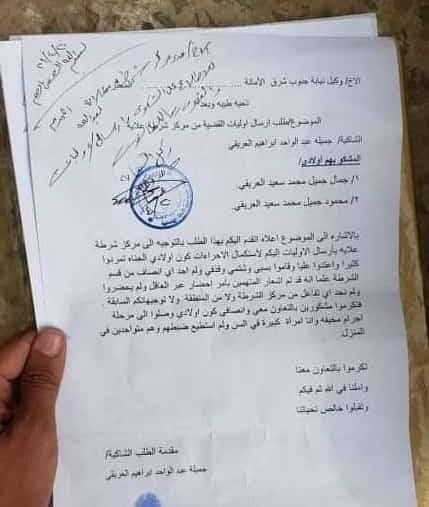 الاخ/ وكيل نيابة جنوب شرق الأمانة ............ المحترم
تحيه طيبه وبعد
الموضوع/ طلب ارسال اوليات القضية من مركز شرطة علاية
الشاكية/ جميله عبد الواحد ابراهيم العريقي
المشكو بهم أولادي/
١/ جمال جميل محمد سعيد العريقي.
٢/ محمود جميل محمد سعيد العريقي.
بالاشاره الى الموضوع اعلاه اتقدم اليكم بهذا الطلب بالتوجيه الى مركز شرطة
علايه بأرسال الاوليات اليكم لاستكمال الاجراءات كون اولادي الجناه تمردوا
كثيرا واعتدوا عليا وقاموا بسبي وشتمي وقذفي ولم اجد اي انصاف من قسم
الشرطة علما انه قد تم اشعار المتهمين بأمر إحضار عبر العاقل ولم يحضروا
ولم نجد اي تفاعل من مركز الشرطة ولا من المنطقة ولا توجيهاتكم السابقة .
فتكرموا مشكورين بالتعاون معي وانصافي كون اولادي وصلوا الى مرحلة
اجرام مخيفه وانا امرأة كبيرة في السن ولم استطيع ضبطهم وهم متواجدين في
المنزل.
تكرموا بالتعاون معنا
واملنا في الله ثم فيكم
وتقبلوا خالص تحياتنا
مقدمة الطلب الشاكية/
جميلة عبد الواحد ابراهيم العريقي